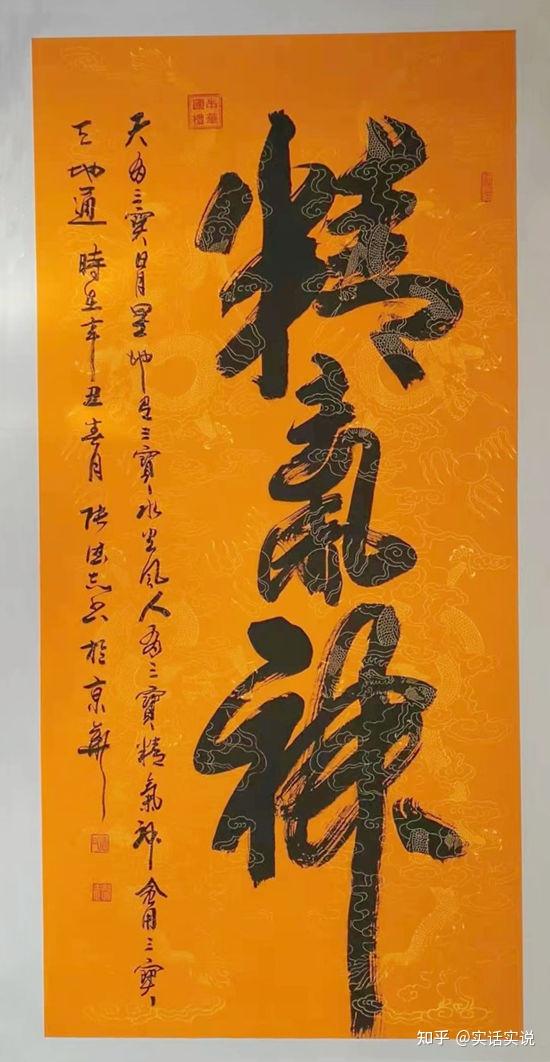 精氣神
天有三寶日月星地有三寶水火風人有三寶精氣神會用三寶
天地通 時在辛丑春月 張志书於京華
國禮
知乎 @实话实说